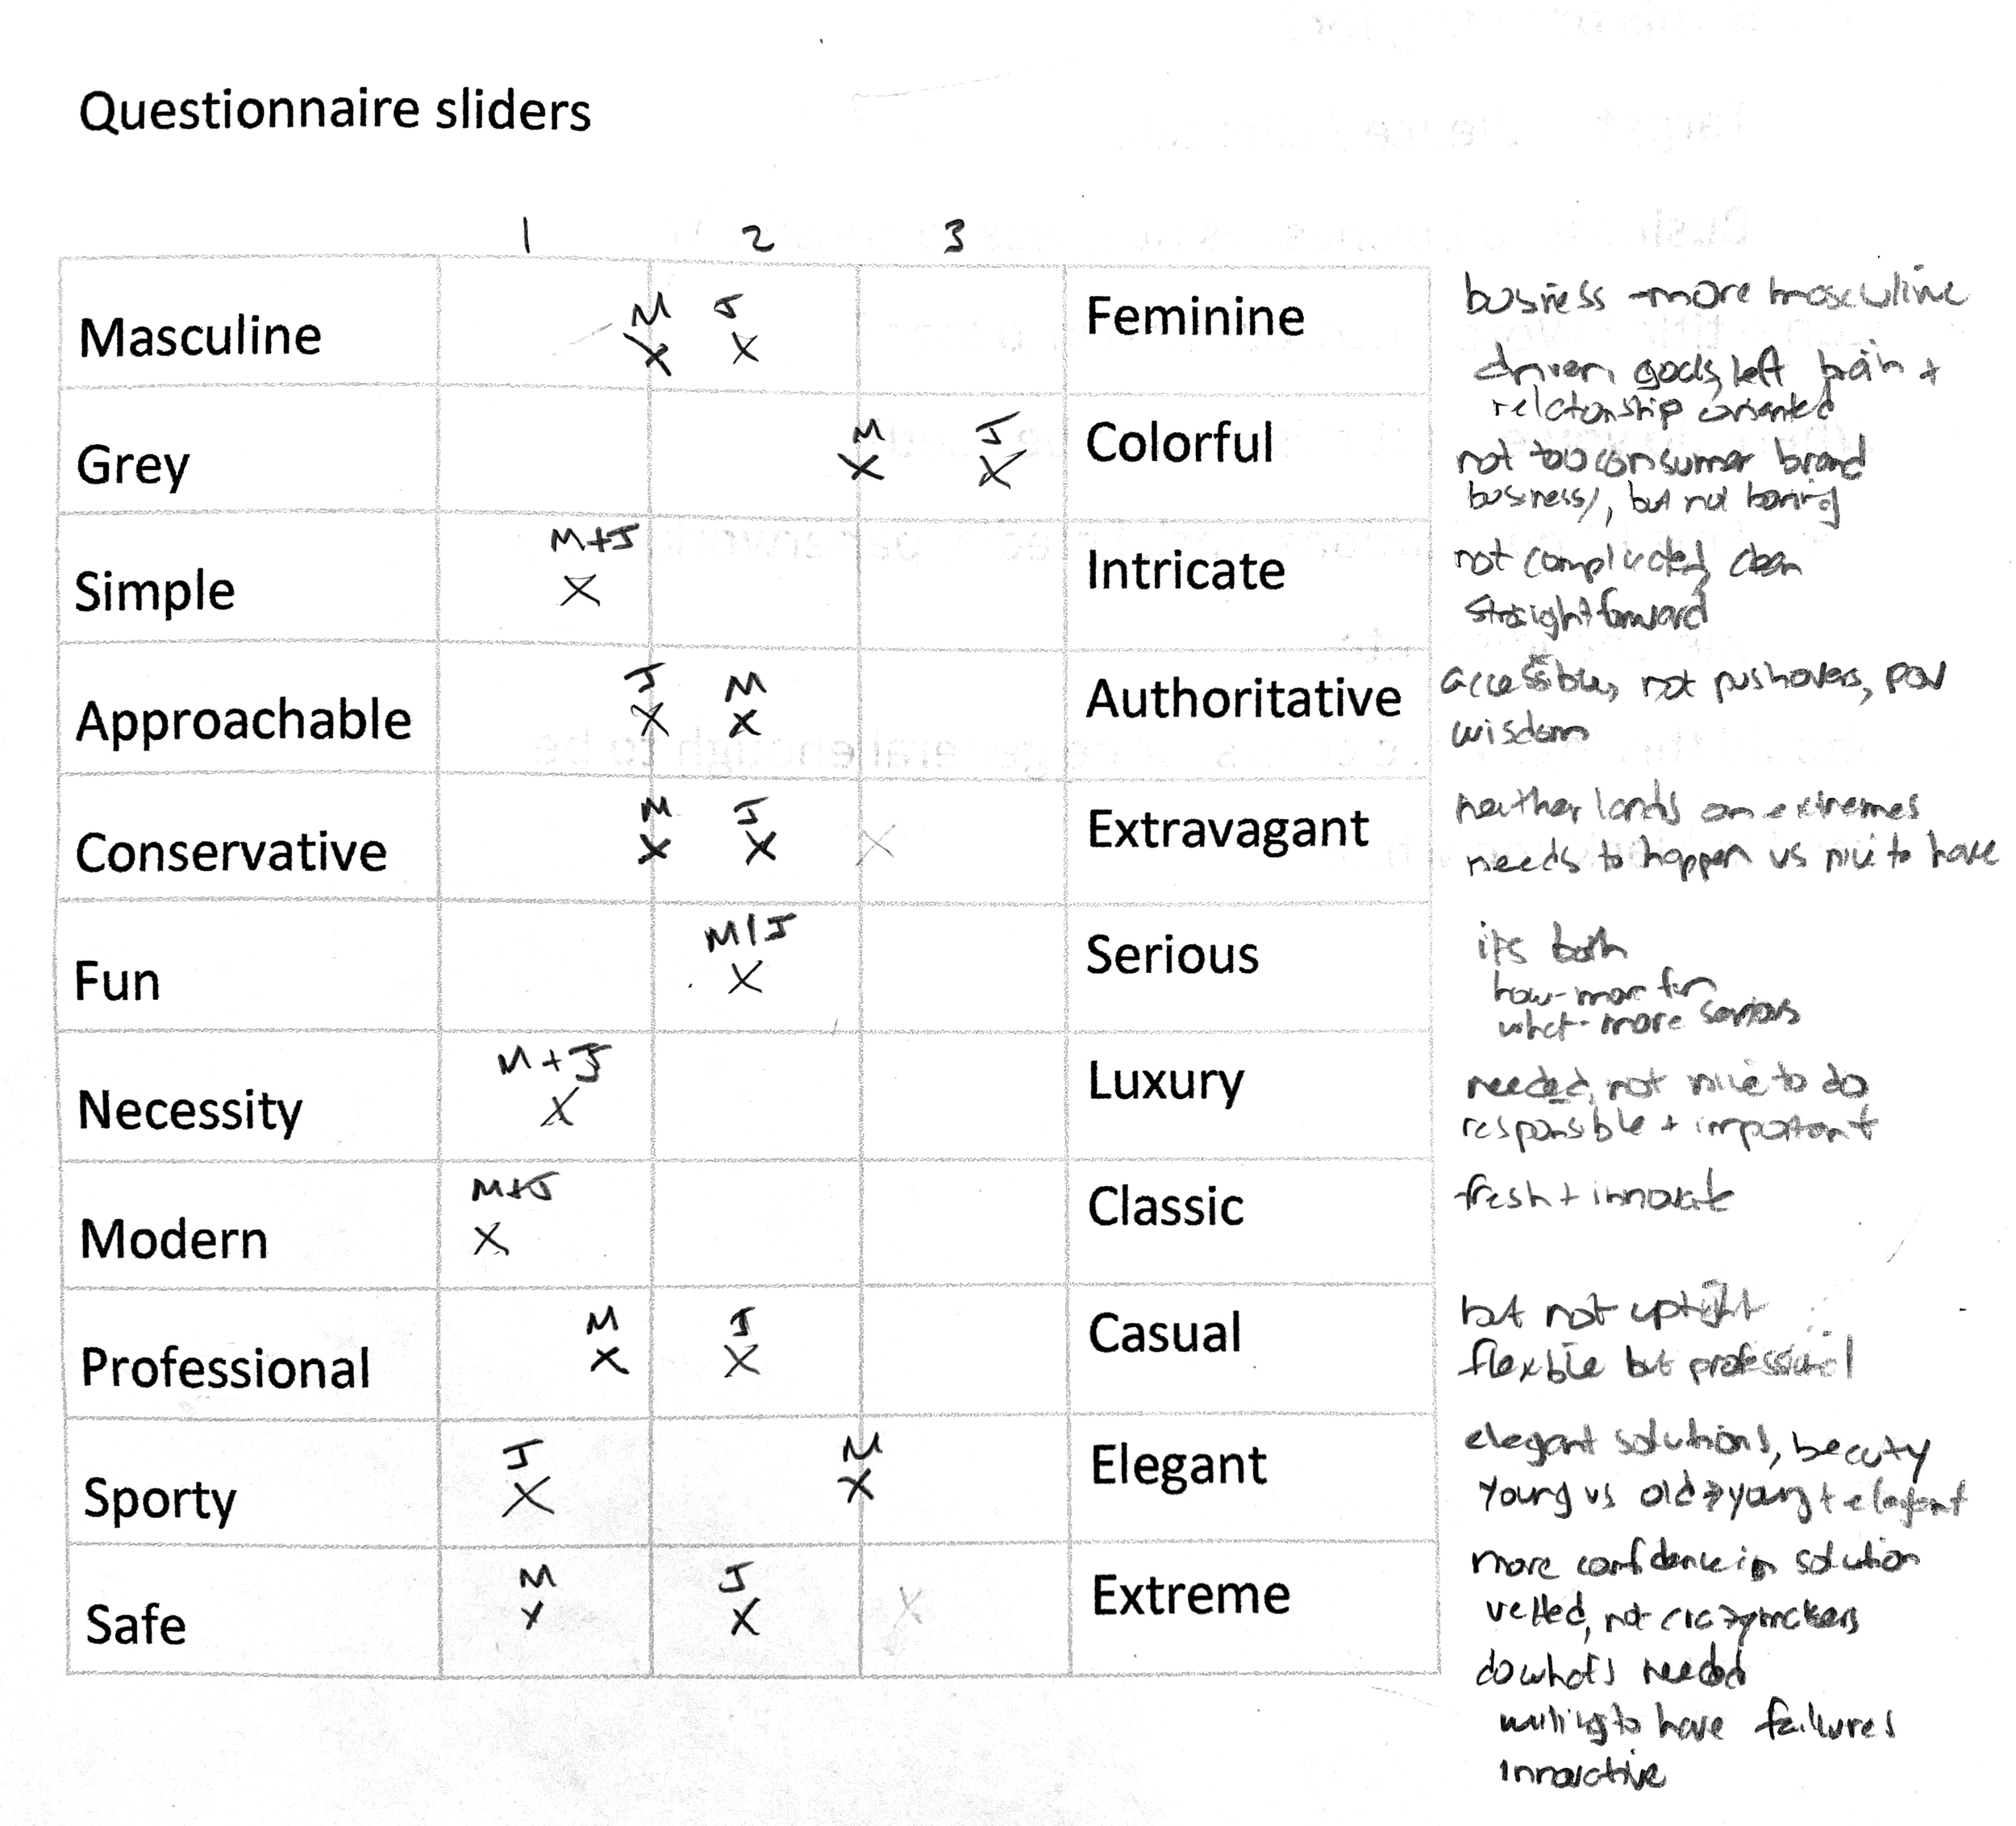 Questionnaire sliders
1 2 3
Masculine M J Feminine business - more masculine
X X
driven, goals, left brain +
relationship oriented
Grey M J Colorful not too consumer brand
X X business, but not boring
Simple M+J Intricate not complicated, clean
X straightforward
Approachable J M Authoritative accessible, not pushovers, POV
X X wisdom
Conservative M J Extravagant neither lands on extremes
X X X needs to happen vs nice to have
Fun M/J Serious its both
X how - more fun
what - more serious
Necessity M+J Luxury needed, not nice to do
X responsible + important
Modern M+J Classic fresh + innovate
X
Professional M J Casual but not uptight
X X flexible but professional
Sporty J M Elegant elegant solutions, beauty
X X young vs old → young + elegant
Safe M J Extreme more confidence in solution
X X X vetted, not crazymakers
do what's needed
willing to have failures
innovative